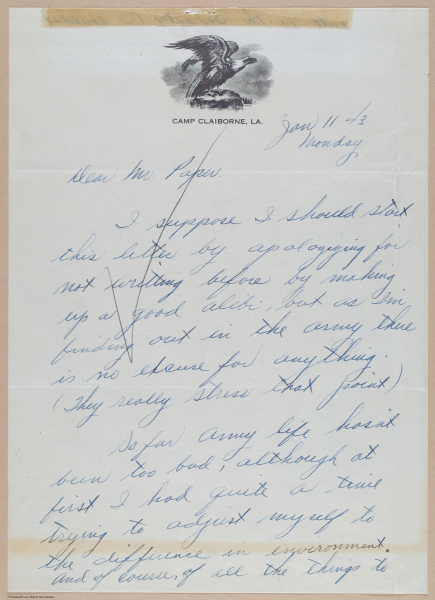 CAMP CLAIBORNE, LA.
Jan 11-43
Monday
Dear Mr. Paper.
I suppose I should start
this letter by apologizing for
not writing before by making
up a good alibi, but as I'm
finding out in the army there
is no excuse for anything.
(They really stress that point)
So far army life hasn't
been too bad, although at
first I had quite a time
trying to adjust myself to
the difference in environment.
and of course, of all the things to